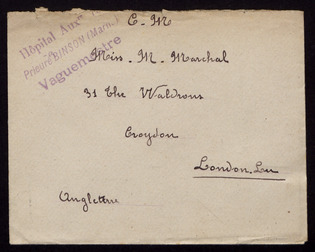 E - M
Hôpital Aux.re
Prieuré BINSON (Marne)
Vaguemestre
Miss. M. Marchal
31 The Waldrons
Croydon
London.
Angleterre